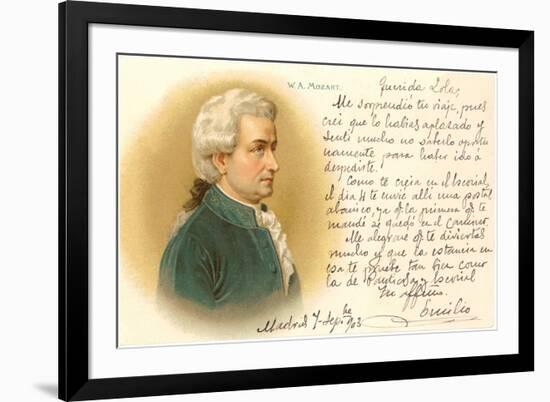 W. A. MOZART.
Querida Lola,
Me sorprendió tu viaje, pues
creí que lo habías aplazado y
sentí mucho no saberlo oportu
namente para haber ido á
despedirte.
Como te creia en el Escorial,
el dia 4 te envié alli una postal
abanico, ya q. la primera q. te
mandé se quedó en el camino.
Me alegraré q. te diviertas
mucho y que la estancia en
esa te pruebe tan bien como
la de y Escorial
Tu affmo.
Emilio
Madrid 7-Sepbre 903